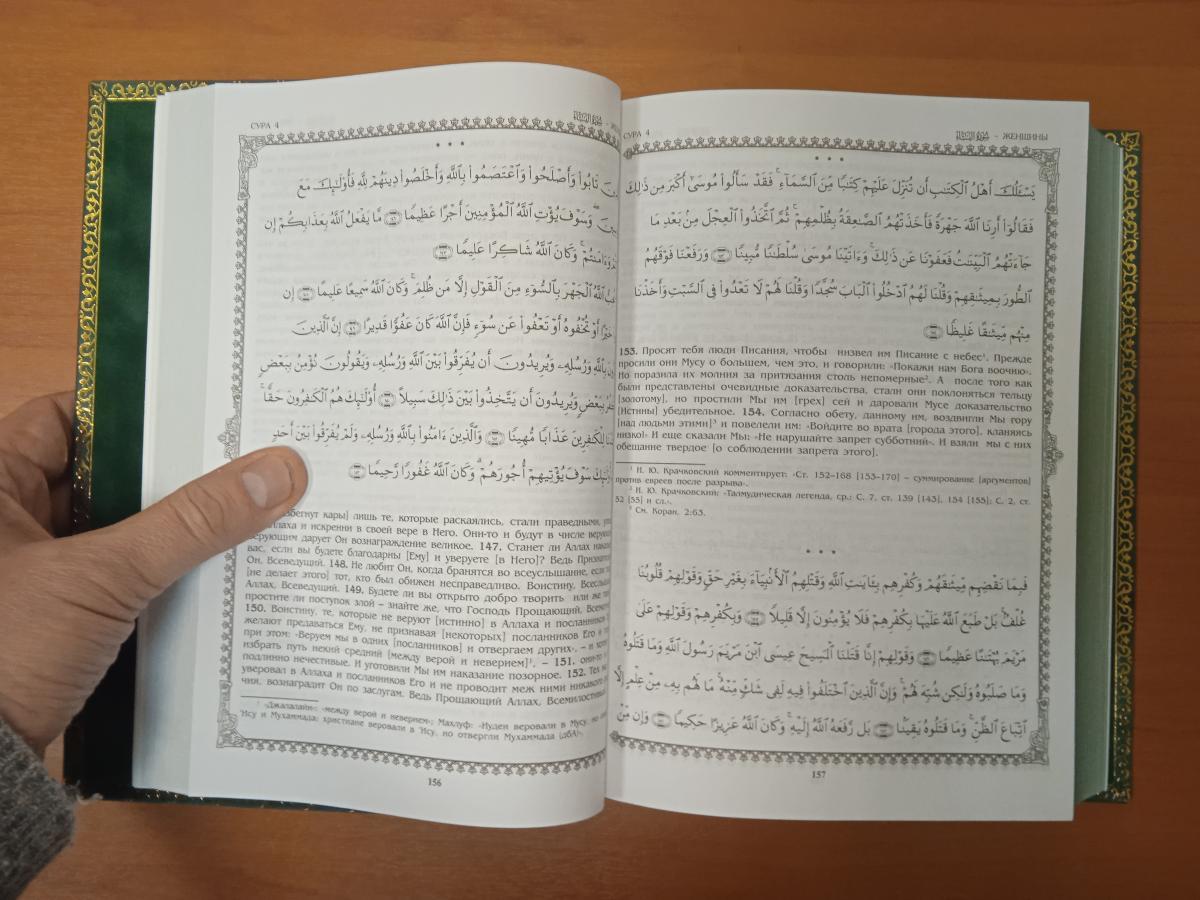 СУРА 4
* * *
تَابُوا۟ وَأَصْلَحُوا۟ وَٱعْتَصَمُوا۟ بِٱللَّهِ وَأَخْلَصُوا۟ دِينَهُمْ لِلَّهِ فَأُو۟لَٰٓئِكَ مَعَ
وَسَوْفَ يُؤْتِ ٱللَّهُ ٱلْمُؤْمِنِينَ أَجْرًا عَظِيمًا ۝ مَّا يَفْعَلُ ٱللَّهُ بِعَذَابِكُمْ إِن
وَءَامَنتُمْ ۚ وَكَانَ ٱللَّهُ شَاكِرًا عَلِيمًا ۝
ٱللَّهُ ٱلْجَهْرَ بِٱلسُّوٓءِ مِنَ ٱلْقَوْلِ إِلَّا مَن ظُلِمَ ۚ وَكَانَ ٱللَّهُ سَمِيعًا عَلِيمًا ۝ إِن
خَيْرًا أَوْ تُخْفُوهُ أَوْ تَعْفُوا۟ عَن سُوٓءٍ فَإِنَّ ٱللَّهَ كَانَ عَفُوًّا قَدِيرًا ۝ إِنَّ ٱلَّذِينَ
بِٱللَّهِ وَرُسُلِهِۦ وَيُرِيدُونَ أَن يُفَرِّقُوا۟ بَيْنَ ٱللَّهِ وَرُسُلِهِۦ وَيَقُولُونَ نُؤْمِنُ بِبَعْضٍ
بِبَعْضٍ وَيُرِيدُونَ أَن يَتَّخِذُوا۟ بَيْنَ ذَٰلِكَ سَبِيلًا ۝ أُو۟لَٰٓئِكَ هُمُ ٱلْكَٰفِرُونَ حَقًّا ۚ
لِلْكَٰفِرِينَ عَذَابًا مُّهِينًا ۝ وَٱلَّذِينَ ءَامَنُوا۟ بِٱللَّهِ وَرُسُلِهِۦ وَلَمْ يُفَرِّقُوا۟ بَيْنَ أَحَدٍ
سَوْفَ يُؤْتِيهِمْ أُجُورَهُمْ ۗ وَكَانَ ٱللَّهُ غَفُورًا رَّحِيمًا ۝
кары] лишь те, которые раскаялись, стали праведными,
Аллаха и искренни в своей вере в Него. Они-то и будут в числе
дарует Он вознаграждение великое. 147. Станет ли Аллах
вас, если вы будете благодарны [Ему] и уверуете [в Него]? Ведь
Он, Всеведущий. 148. Не любит Он, когда бранятся во всеуслышание, если
[не делает этого] тот, кто был обижен несправедливо. Воистину,
Аллах, Всеведущий. 149. Будете ли вы открыто добро творить или же
простите ли поступок злой – знайте же, что Господь Прощающий,
150. Воистину, те, которые не веруют [истинно] в Аллаха и посланников
желают предаваться Ему, не признавая [некоторых] посланников Его и
при этом: «Веруем мы в одних [посланников] и отвергаем других», – и
избрать путь некий средний [между верой и неверием]¹, – 151.
подлинно нечестивые. И уготовили Мы им наказание позорное. 152.
уверовал в Аллаха и посланников Его и не проводит меж ними никакого
вознаградит Он по заслугам. Ведь Прощающий Аллах, Всемилостивый.
¹ «Джалалайн»: «между верой и неверием»; Махлуф: «Иудеи веровали в Мусу, но
‘Ису и Мухаммада; христиане веровали в ‘Ису, но отвергли Мухаммада (дбА)».
156
СУРА 4 – ЖЕНЩИНЫ
* * *
يَسْـَٔلُكَ أَهْلُ ٱلْكِتَٰبِ أَن تُنَزِّلَ عَلَيْهِمْ كِتَٰبًا مِّنَ ٱلسَّمَآءِ ۚ فَقَدْ سَأَلُوا۟ مُوسَىٰٓ أَكْبَرَ مِن ذَٰلِكَ
فَقَالُوٓا۟ أَرِنَا ٱللَّهَ جَهْرَةً فَأَخَذَتْهُمُ ٱلصَّٰعِقَةُ بِظُلْمِهِمْ ۚ ثُمَّ ٱتَّخَذُوا۟ ٱلْعِجْلَ مِنۢ بَعْدِ مَا
جَآءَتْهُمُ ٱلْبَيِّنَٰتُ فَعَفَوْنَا عَن ذَٰلِكَ ۚ وَءَاتَيْنَا مُوسَىٰ سُلْطَٰنًا مُّبِينًا ۝ وَرَفَعْنَا فَوْقَهُمُ
ٱلطُّورَ بِمِيثَٰقِهِمْ وَقُلْنَا لَهُمُ ٱدْخُلُوا۟ ٱلْبَابَ سُجَّدًا وَقُلْنَا لَهُمْ لَا تَعْدُوا۟ فِى ٱلسَّبْتِ وَأَخَذْنَا
مِنْهُم مِّيثَٰقًا غَلِيظًا ۝
153. Просят тебя люди Писания, чтобы низвел им Писание с небес¹. Прежде
просили они Мусу о большем, чем это, и говорили: «Покажи нам Бога воочию».
Но поразила их молния за притязания столь непомерные². А после того как
были представлены очевидные доказательства, стали они поклоняться тельцу
[золотому], но простили Мы им [грех] сей и даровали Мусе доказательство
[Истины] убедительное. 154. Согласно обету, данному им, воздвигли Мы гору
[над людьми этими]³ и повелели им: «Войдите во врата [города этого], кланяясь
низко!» И еще сказали Мы: «Не нарушайте запрет субботний». И взяли мы с них
обещание твердое [о соблюдении запрета этого].
¹ И. Ю. Крачковский комментирует: «Ст. 152–168 [153–170] – суммирование [аргументов]
против евреев после разрыва».
² И. Ю. Крачковский: «Талмудическая легенда, ср.: С. 7, ст. 139 [143], 154 [155]; С. 2, ст.
52 [55] и сл.».
³ См. Коран, 2:63.
* * *
فَبِمَا نَقْضِهِم مِّيثَٰقَهُمْ وَكُفْرِهِم بِـَٔايَٰتِ ٱللَّهِ وَقَتْلِهِمُ ٱلْأَنۢبِيَآءَ بِغَيْرِ حَقٍّ وَقَوْلِهِمْ قُلُوبُنَا
غُلْفٌۢ ۚ بَلْ طَبَعَ ٱللَّهُ عَلَيْهَا بِكُفْرِهِمْ فَلَا يُؤْمِنُونَ إِلَّا قَلِيلًا ۝ وَبِكُفْرِهِمْ وَقَوْلِهِمْ عَلَىٰ
مَرْيَمَ بُهْتَٰنًا عَظِيمًا ۝ وَقَوْلِهِمْ إِنَّا قَتَلْنَا ٱلْمَسِيحَ عِيسَى ٱبْنَ مَرْيَمَ رَسُولَ ٱللَّهِ وَمَا قَتَلُوهُ
وَمَا صَلَبُوهُ وَلَٰكِن شُبِّهَ لَهُمْ ۚ وَإِنَّ ٱلَّذِينَ ٱخْتَلَفُوا۟ فِيهِ لَفِى شَكٍّ مِّنْهُ ۚ مَا لَهُم بِهِۦ مِنْ عِلْمٍ إِلَّا
ٱتِّبَاعَ ٱلظَّنِّ ۚ وَمَا قَتَلُوهُ يَقِينًۢا ۝ بَل رَّفَعَهُ ٱللَّهُ إِلَيْهِ ۚ وَكَانَ ٱللَّهُ عَزِيزًا حَكِيمًا ۝ وَإِن مِّنْ
157